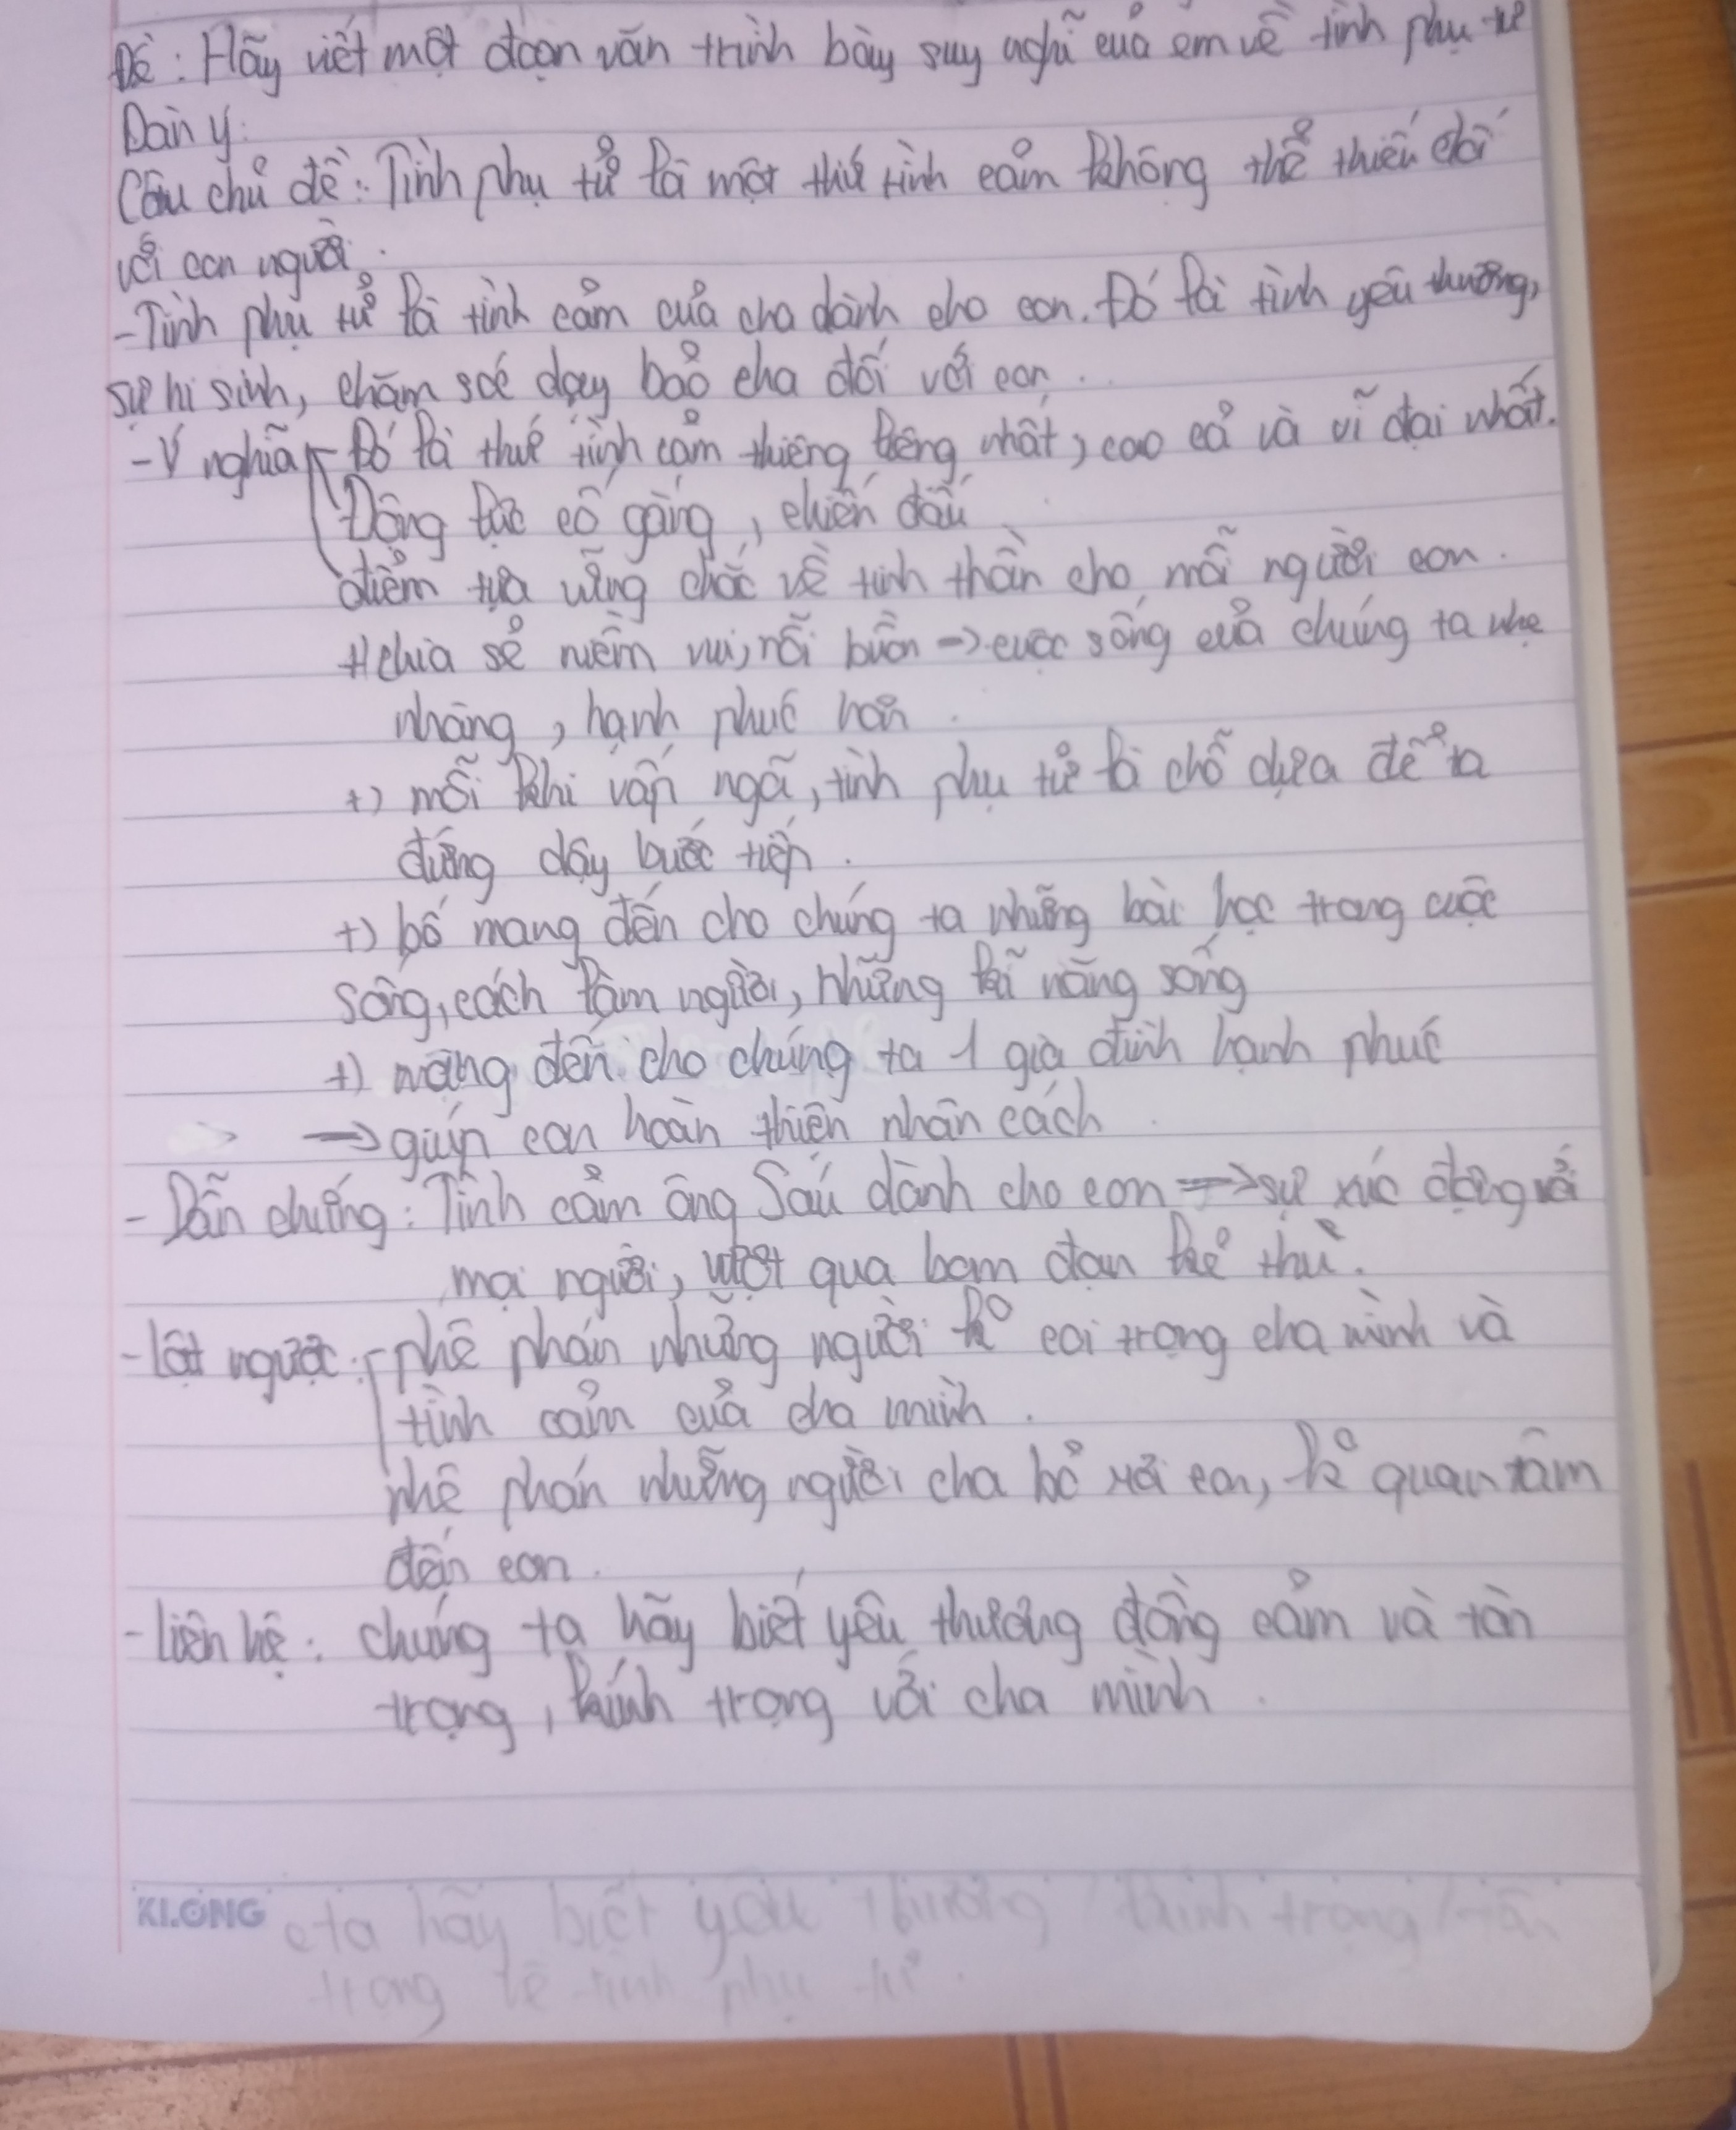 Đề: Hãy viết một đoạn văn trình bày suy nghĩ của em về tình phụ tử
Dàn ý:
Câu chủ đề: Tình phụ tử là một thứ tình cảm không thể thiếu đối
với con người.
-Tình phụ tử là tình cảm của cha dành cho con. Đó là tình yêu thương,
sự hi sinh, chăm sóc dạy bảo cha đối với con.
-Ý nghĩa Đó là thứ tình cảm thiêng liêng nhất, cao cả và vĩ đại nhất.
Động lực cố gắng, chiến đấu
điểm tựa vững chắc về tinh thần cho mỗi người con.
+) chia sẻ niềm vui, nỗi buồn → cuộc sống của chúng ta nhẹ
nhàng, hạnh phúc hơn.
+) mỗi khi vấp ngã, tình phụ tử là chỗ dựa để ta
đứng dậy bước tiếp.
+) bố mang đến cho chúng ta những bài học trong cuộc
sống, cách làm người, những kĩ năng sống
+) mang đến cho chúng ta 1 gia đình hạnh phúc
→ giúp con hoàn thiện nhân cách.
- Dẫn chứng: Tình cảm ông Sáu dành cho con → sự xúc động với
mọi người, vượt qua bom đạn kẻ thù.
-lật ngược: phê phán những người ko coi trọng cha mình và
tình cảm của cha mình.
phê phán những người cha bỏ rơi con, ko quan tâm
đến con.
-liên hệ: chúng ta hãy biết yêu thương đồng cảm và tôn
trọng, kính trọng với cha mình.
KLONG
cta hãy biết yêu thương / kính trọng /
trọng tình phụ tử.